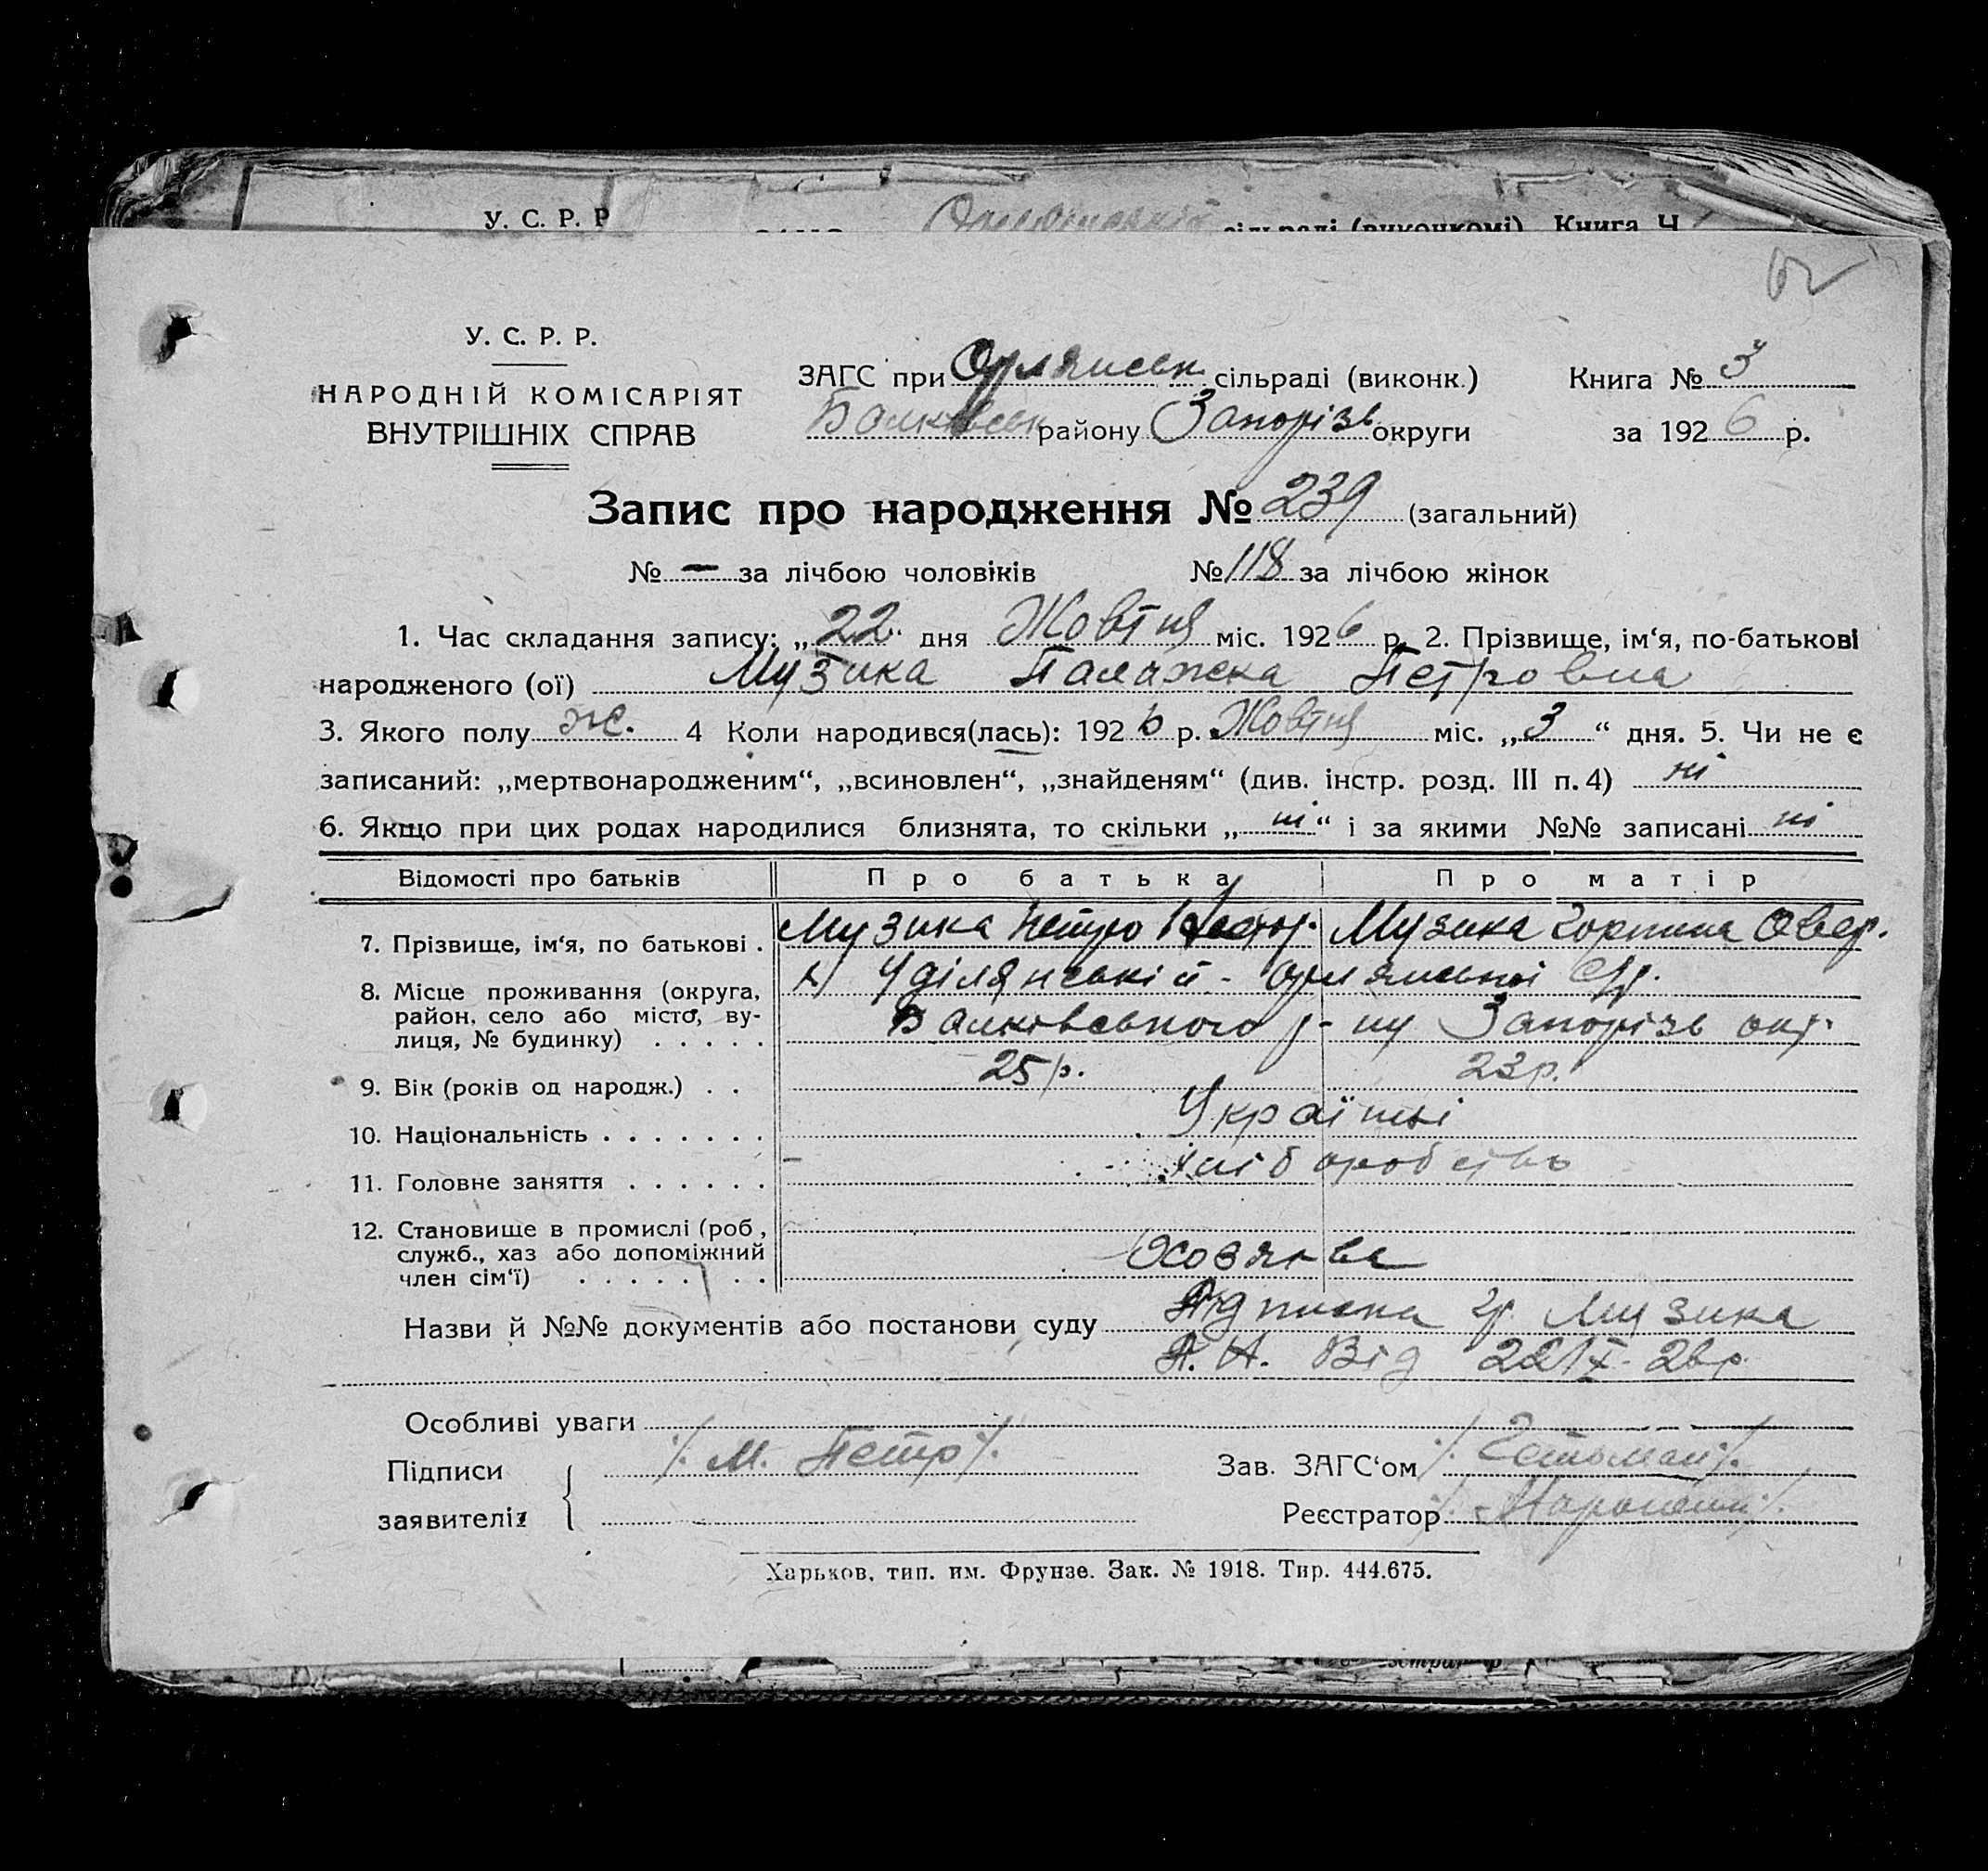 У. С. Р. Р
сільраді (виконкомі) Книга Ч
У. С. Р. Р.
НАРОДНІЙ КОМІСАРІЯТ
ВНУТРІШНІХ СПРАВ
ЗАГС при Орлянськ. сільраді (виконк.)
Балківськ району Запорізь округи
Книга № 3
за 1926 р.
Запис про народження № 239 (загальний)
№ — за лічбою чоловіків № 118 за лічбою жінок
1. Час складання запису: „22“ дня Жовтня міс. 1926 р. 2. Прізвище, ім‘я, по-батькові
народженого (ої) Музика Палажка Петровна
3. Якого полу ж. 4 Коли народився(лась): 1926 р. Жовтня міс. „3“ дня. 5. Чи не є
записаний: „мертвонародженим“, „всиновлен“, „знайденям“ (див. інстр. розд. III п. 4) ні
6. Якщо при цих родах народилися близнята, то скільки „ні“ і за якими №№ записані ні
Відомості про батьків Про батька Про матір
7. Прізвище, ім‘я, по батькові . Музика Петро Нестор. Музика Горпина Овер.
8. Місце проживання (округа,
район, село або місто, ву-
лиця, № будинку) . . . . .
Уділянській - Орлянської с/р.
Балківського р-ну Запорізь окр.
9. Вік (років од народж.) . . 25 р. 23 р.
10. Національність . . . . . . . Українці
11. Головне заняття . . . . . . хліборобств
12. Становище в промислі (роб,
служб., хаз або допоміжний
член сім‘ї) . . . . . . . .
Хозяїва
Назви й №№ документів або постанови суду Підписка гр. Музика
П. Н. Від 22/X- 26 р.
Особливі уваги
Підписи
заявителів
/. М. Петр /.
Зав. ЗАГС‘ом /. Гетьман /.
Реєстратор
Харьков, тип. им. Фрунзе. Зак. № 1918. Тир. 444.675.